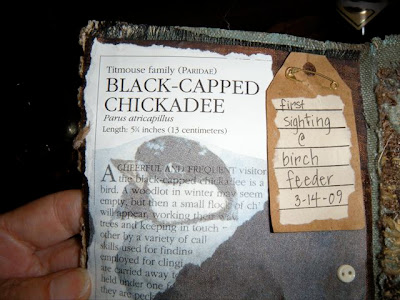 Titmouse family (PARIDAE)
BLACK-CAPPED
CHICKADEE
Parus atricapillus
Length: 5¼ inches (13 centimeters)
A CHEERFUL AND FREQUENT visitor
the black-capped chickadee is a
bird. A woodlot in winter may seem
empty, but then a small flock of ch'
will appear, working their way
trees and keeping in touch
other by a variety of call
skills used for finding
employed for clingi
are carried away to
held under one f
they are peck
first
sighting
@
birch
feeder
3-14-09